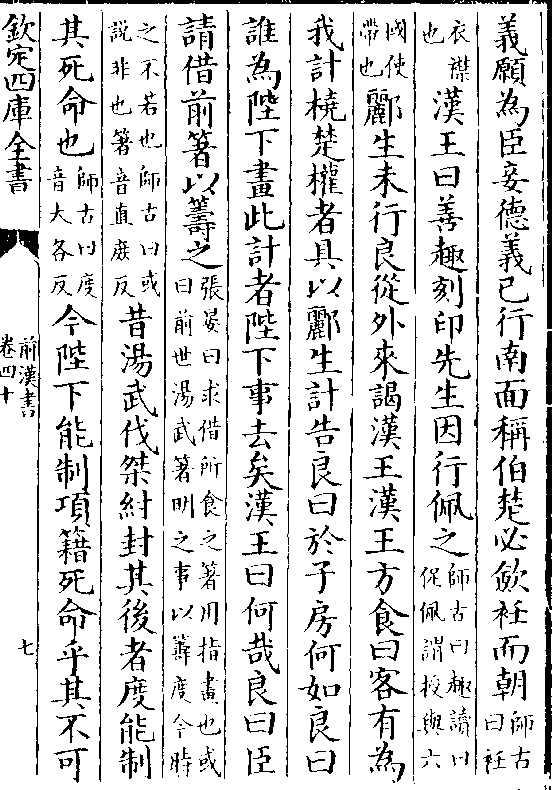 義願為臣妾德義已行南面稱伯楚必斂衽而朝師古曰衽
衣襟也漢王曰善趣刻印先生因行佩之師古曰趣讀曰促佩謂授與六
國使帶也酈生未行良從外來謁漢王漢王方食曰客有為
我計橈楚權者具以酈生計告良曰於子房何如良曰
誰為陛下畫此計者陛下事去矣漢王曰何哉良曰臣
請借前箸以籌之張晏曰求借所食之箸用指畫也或曰前世湯武箸明之事以籌度今時
之不若也師古曰或說非也箸音直庶反昔湯武伐桀紂封其後者度能制
其死命也師古曰度音大各反今陛下能制項籍死命乎其不可
欽定四庫全書
前漢書
卷四十
七